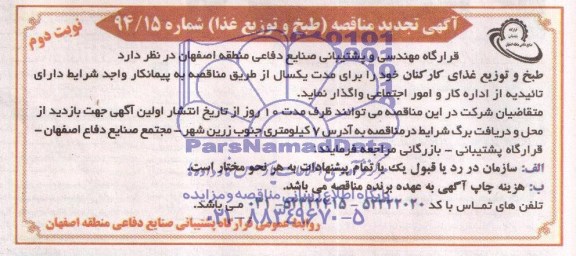 آگهی تجدید مناقصه (طبخ و توزیع غذا) شماره ۹۴/۱۵
نوبت دوم
قرارگاه مهندسی و پشتیبانی صنایع دفاعی منطقه اصفهان در نظر دارد
طبخ و توزیع غذای کارکنان خود را برای مدت یکسال از طریق مناقصه به پیمانکار واجد شرایط دارای
تائیدیه از اداره کار و امور اجتماعی واگذار نماید.
متقاضیان شرکت در این مناقصه می توانند ظرف مدت ۱۰ روز از تاریخ انتشار اولین آگهی جهت بازدید از
محل و دریافت برگ شرایط در مناقصه به آدرس ۷ کیلومتری جنوب زرین شهر - مجتمع صنایع دفاع اصفهان -
قرارگاه پشتیبانی - بازرگانی مراجعه فرمایند.
الف: سازمان در رد یا قبول یک یا تمام پیشنهادات به هر نحو مختار است.
ب: هزینه چاپ آگهی به عهده برنده مناقصه می باشد.
تلفن های تماس با کد ۰۳۱ - ۵۲۲۲۲۰۲۰ می باشد.
روابط عمومی قرارگاه پشتیبانی صنایع دفاعی منطقه اصفهان
ParsNamadData
پایگاه اطلاع رسانی مناقصه و مزایده
۰۲۱-۸۸۳۴۹۶۷۰-۵